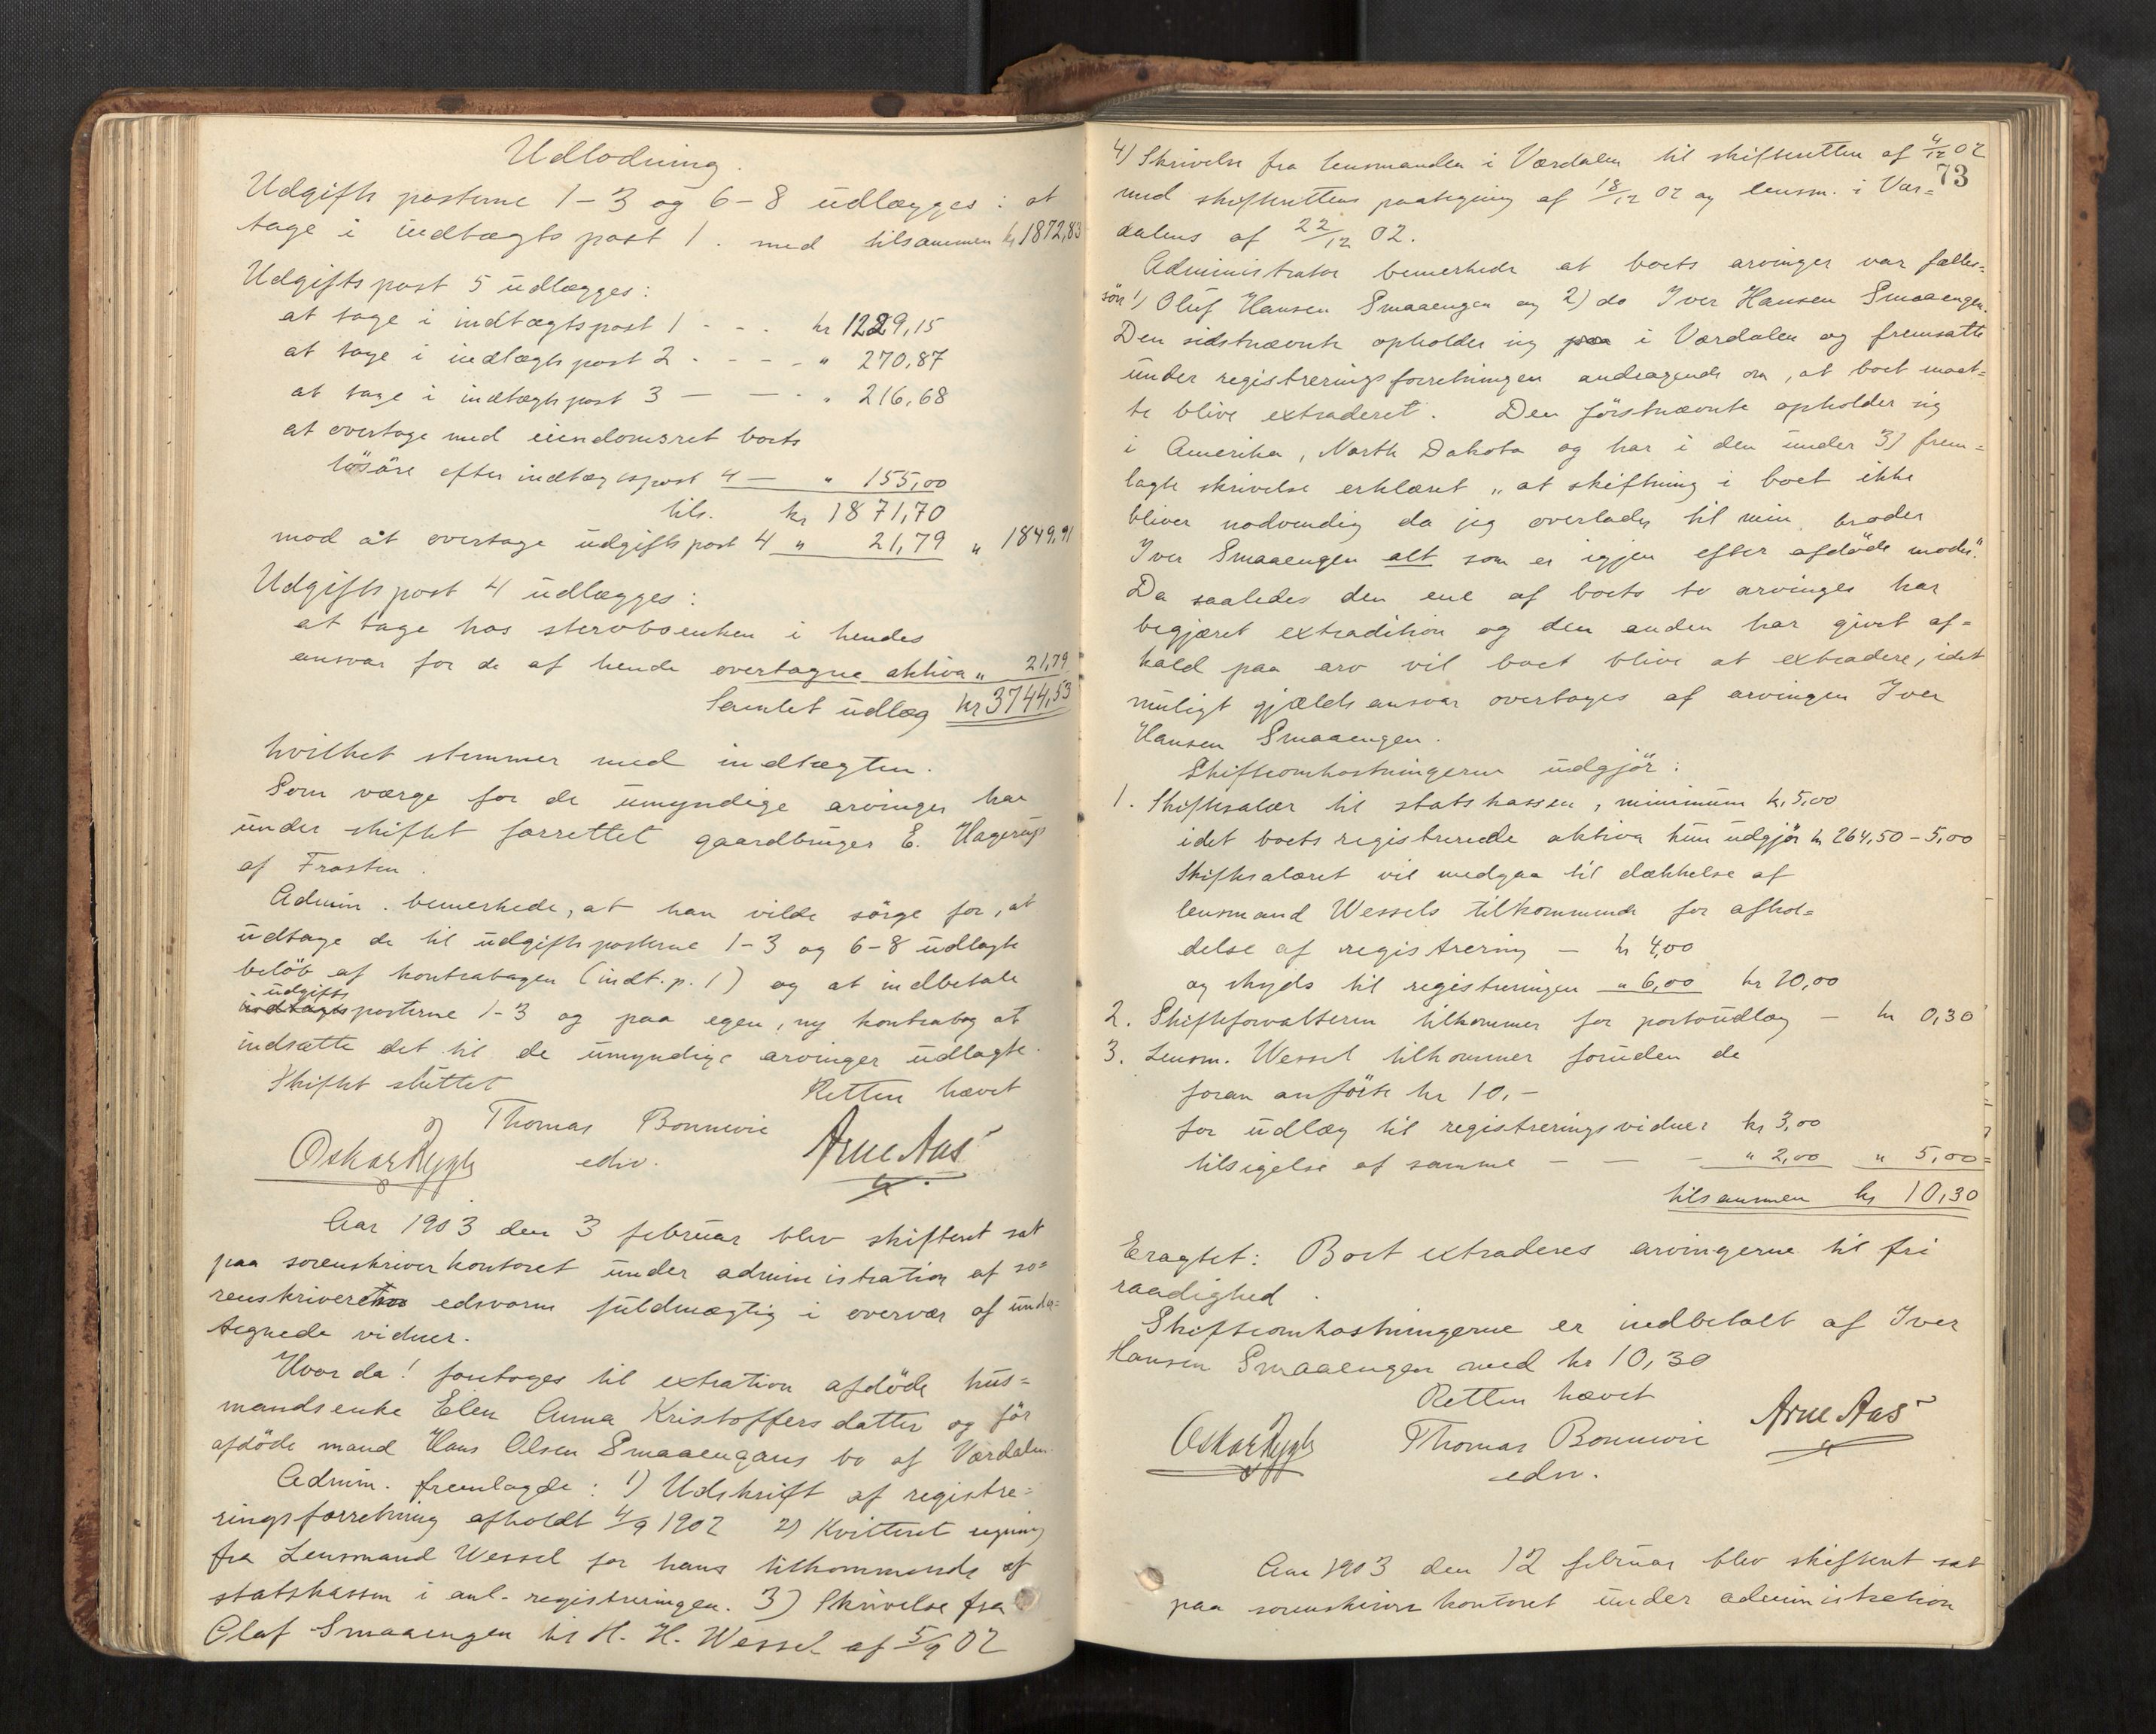 Udlodning.
Udgifts posterne 1-3 og 6-8 udlægges: at
tage i indtægts post 1. med tilsammen kr 1872,83
Udgifts post 5 udlægges:
at tage i indtægtspost 1 - - - kr 1229,15
at tage i indtægts post 2 - - - - " 270,87
at tage i indtægts post 3 — — - " 216,68
at overtage med eiendomsret boets
løsøre efter indtægtspost 4 — " 155,00
tils. kr 1871,70
mod at overtage udgifts post 4 " 21,79 " 1849,91
Udgifts post 4 udlægges:
at tage hos stervbsenken i hendes
ansvar for de af hende overtagne aktiva " 21,79
Samlet udlæg kr 3744,53
hvilket stemmer med indtægten.
Som værge for de umyndige arvinger har
under skiftet forrettet gaardbruger E. Hagerup
af Frosten.
Admin. bemerkede, at han vilde sørge for, at
udtage de til udgifts posterne 1-3 og 6-8 udlagte
beløb af kontrabogen (indt. p. 1) og at indbetale
udgifts
indtægts posterne 1-3 og paa egen, ny kontrabog at
indsætte det til de umyndige arvinger udlagte.
Skiftet sluttet
Retten hævet
Thomas Bonnevie
Oskar Rygh edsv. Arne Aas
Aar 1903 den 3 februar blev skifteret sat
paa sorenskriverkontoret under administration af so=
renskriverens edsvorne fuldmægtig i overvær af under=
tegnede vidner.
Hvor da! foretoges til extration afdøde hus=
mandsenke Elen Anna Kristoffersdatter og før
afdøde mand Hans Olsen Smaaengans bo af Værdalen.
Admin. fremlagde: 1) Udskrift af registre=
ringsforretning afholdt 4/9 1902 2) Kvitteret regning
fra Lensmand Wessel for hans tilkommende af
statskassen i anl. registreringen. 3) Skrivelse fra
Olaf Smaaengen til H. H. Wessel af 5/9 02
73
4) Skrivelse fra lensmanden i Værdalen til skifteretten af 4/12 02
med skifterettens paategning af 18/12 02 og lensm. i Vær=
dalens af 22/12 02.
Administrator bemerkede at boets arvinger var fælles=
søn 1) Oluf Hansen Smaaengen og 2) do Iver Hansen Smaaengen.
Den sidstnævnte opholder sig paa i Værdalen og fremsatte
under registreringsforretningen andragende om, at boet maat=
te blive extraderet. Den førstnævnte opholder sig
i Amerika, North Dakota og har i den under 3) frem=
lagte skrivelse erklæret „at skiftning i boet ikke
bliver nødvendig da jeg overlader til min broder
Iver Smaaengen alt som er igjen efter afdøde moder".
Da saaledes den ene af boets to arvinger har
begjæret extradition og den anden har givet af=
kald paa arv vil boet blive at extradere, idet
muligt gjældsansvar overtages af arvingen Iver
Hansen Smaaengen.
Skifteomkostningerne udgjør:
1. Skiftesalær til statskassen, minimum kr. 5,00
idet boets registrerede aktiva kun udgjør kr 264,50 - 5,00
Skiftesalæret vil medgaa til dækkelse af
lensmand Wessels tilkommende for afhol=
delse af registrering — kr 4,00
og skyds til registreringen " 6,00 kr 10,00
2. Skifteforvalteren tilkommer for portoudlæg — kr 0,30
3. Lensm. Wessel tilkommer foruden de
foran anførte kr 10,-
for udlæg til registreringsvidner kr 3,00
tilsigelse af samme — — - " 2,00 " 5,00=
tilsammen kr 10,30
Eragtet: Boet extraderes arvingerne til fri
raadighed.
Skifteomkostningerne er indbetalt af Iver
Hansen Smaaengen med kr 10,30
Retten hævet
Oskar Rygh Thomas Bonnevie Arne Aas
edsv.
Aar 1903 den 12 februar blev skifteret sat
paa sorenskriverkontoret under administration